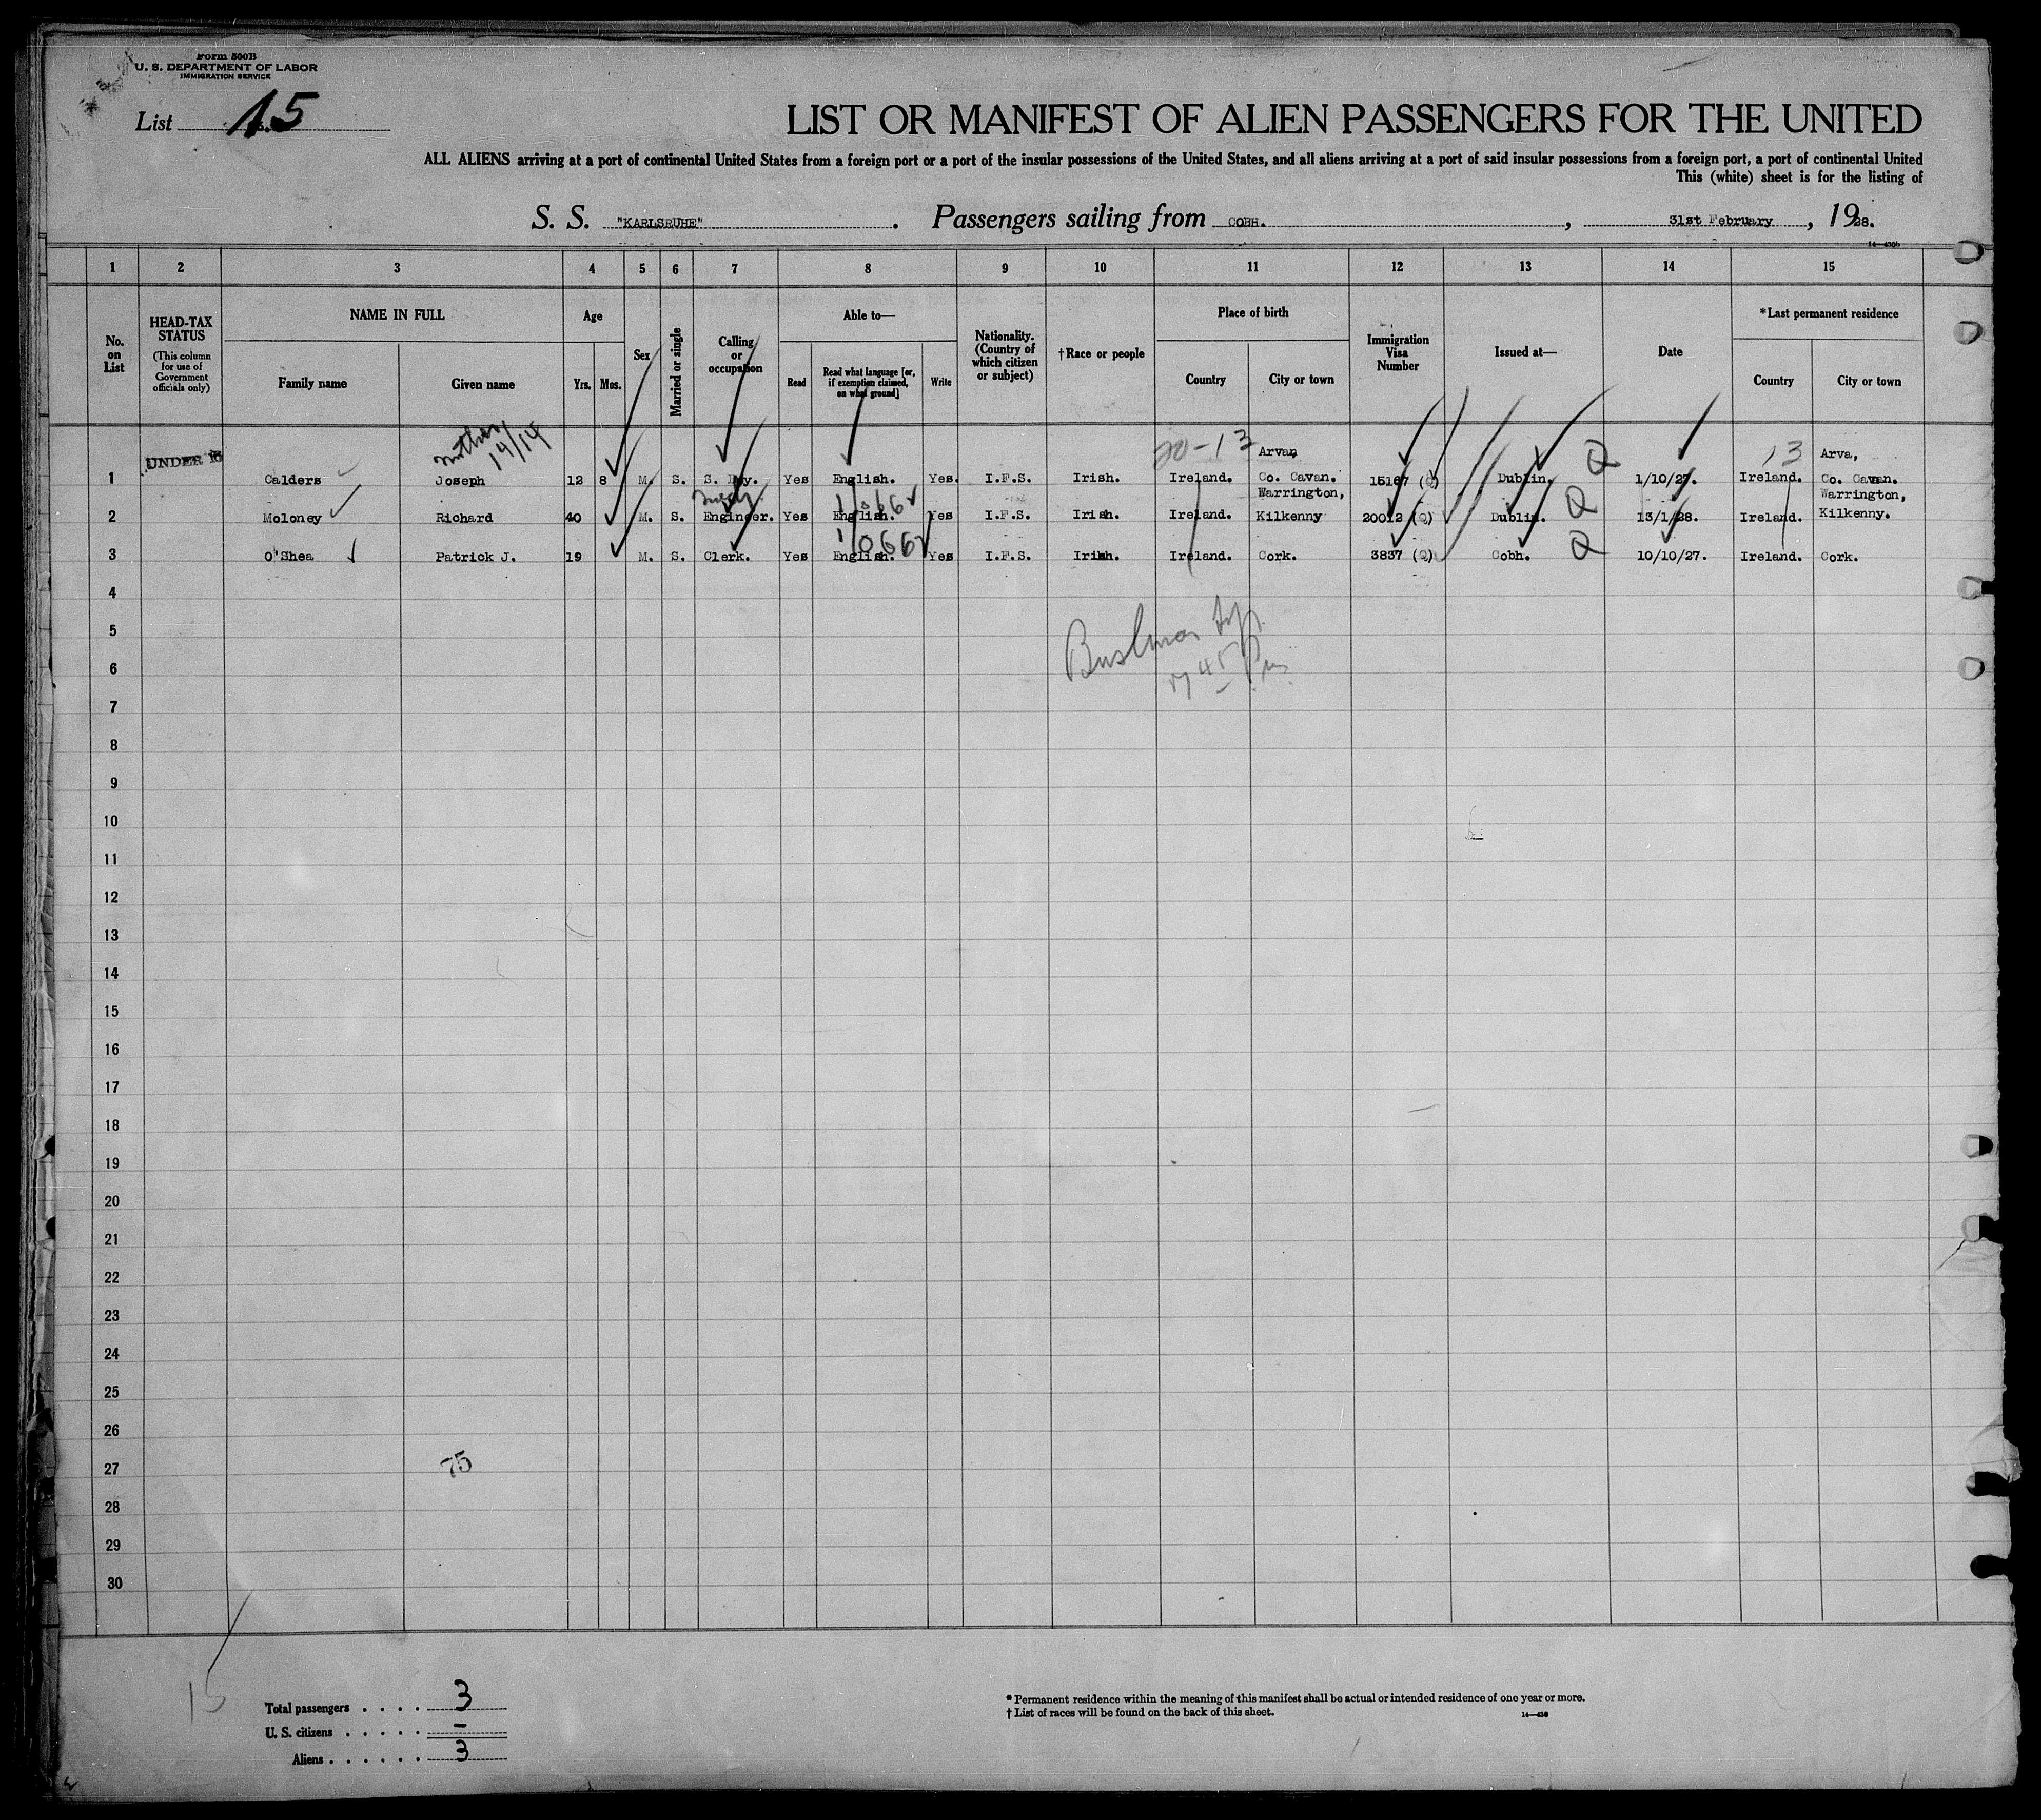 Form 500B
U. S. DEPARTMENT OF LABOR
IMMIGRATION SERVICE
List 15
LIST OR MANIFEST OF ALIEN PASSENGERS FOR THE UNITED
ALL ALIENS arriving at a port of continental United States from a foreign port or a port of the insular possessions of the United States, and all aliens arriving at a port of said insular possessions from a foreign port, a port of continental United
This (white) sheet is for the listing of
S. S. "KARLSRUHE". Passengers sailing from COBH., 31st February, 1928.
14—430b
1 2 3 4 5 6 7 8 9 10 11 12 13 14 15
No. on List
HEAD-TAX STATUS
(This column for use of Government officials only)
NAME IN FULL
Family name
Given name
Age
Yrs.
Mos.
Sex
Married or single
Calling or occupation
Able to—
Read
Read what language [or, if exemption claimed, on what ground]
Write
Nationality. (Country of which citizen or subject)
†Race or people
Place of birth
Country
City or town
Immigration Visa Number
Issued at—
Date
*Last permanent residence
Country
City or town
mother 14/14
UNDER 16
20-13 Arvan, 13 Arva,
1 Calders Joseph 12 8 M. S. S. Boy. Yes English. Yes. I.F.S. Irish. Ireland. Co. Cavan. 15167 (Q) Dublin. Q 1/10/27. Ireland. Co. Cavan.
Warrington, Warrington,
2 Moloney Richard 40 M. S. Engineer. Yes English. Yes I.F.S. Irish. Ireland. Kilkenny 20012 (Q) Dublin. Q 13/1/28. Ireland. Kilkenny.
3 O'Shea Patrick J. 19 M. S. Clerk. Yes English. Yes I.F.S. Irish. Ireland. Cork. 3837 (Q) Cobh. Q 10/10/27. Ireland. Cork.
4
5
6
7
8
9
10
11
12
13
14
15
16
17
18
19
20
21
22
23
24
25
26
27
75
28
29
30
15
Total passengers . . . . 3
U. S. citizens . . . . . –
Aliens . . . . . . 3
* Permanent residence within the meaning of this manifest shall be actual or intended residence of one year or more.
† List of races will be found on the back of this sheet.
14—430